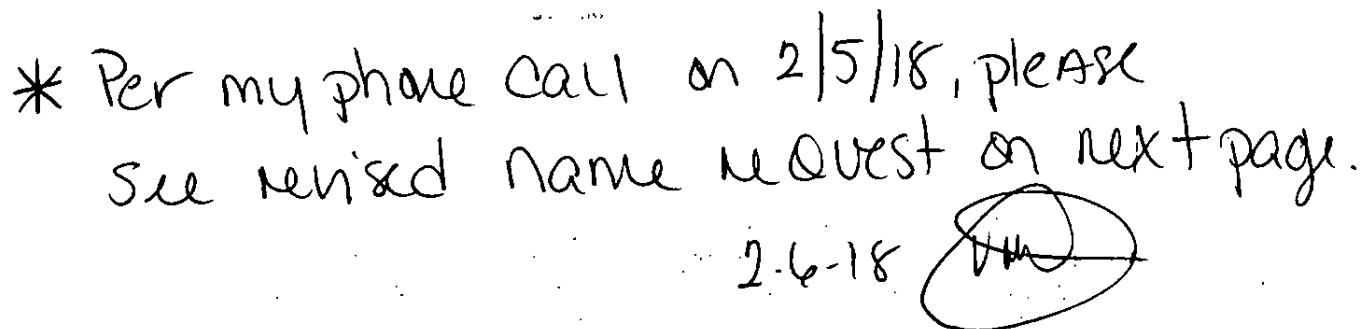 * Per my phone call on 2/5/18, please
see revised name request on next page.
2-6-18